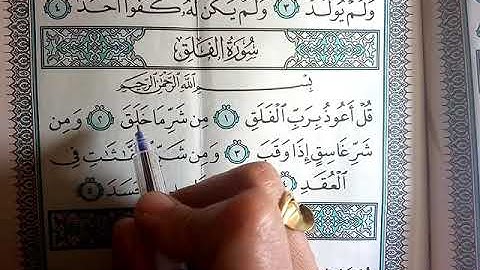 وَلَمْ يُولَدْ ٣ وَلَمْ يَكُن لَّهُ كُفُوًا أَحَدٌ ٤
سُورَةُ الْفَلَقِ
بِسْمِ اللَّهِ الرَّحْمَٰنِ الرَّحِيمِ
قُلْ أَعُوذُ بِرَبِّ الْفَلَقِ ١ مِن شَرِّ مَا خَلَقَ ٢ وَمِن
شَرِّ غَاسِقٍ إِذَا وَقَبَ ٣ وَمِن شَرِّ النَّفَّاثَاتِ فِي
الْعُقَدِ ٤